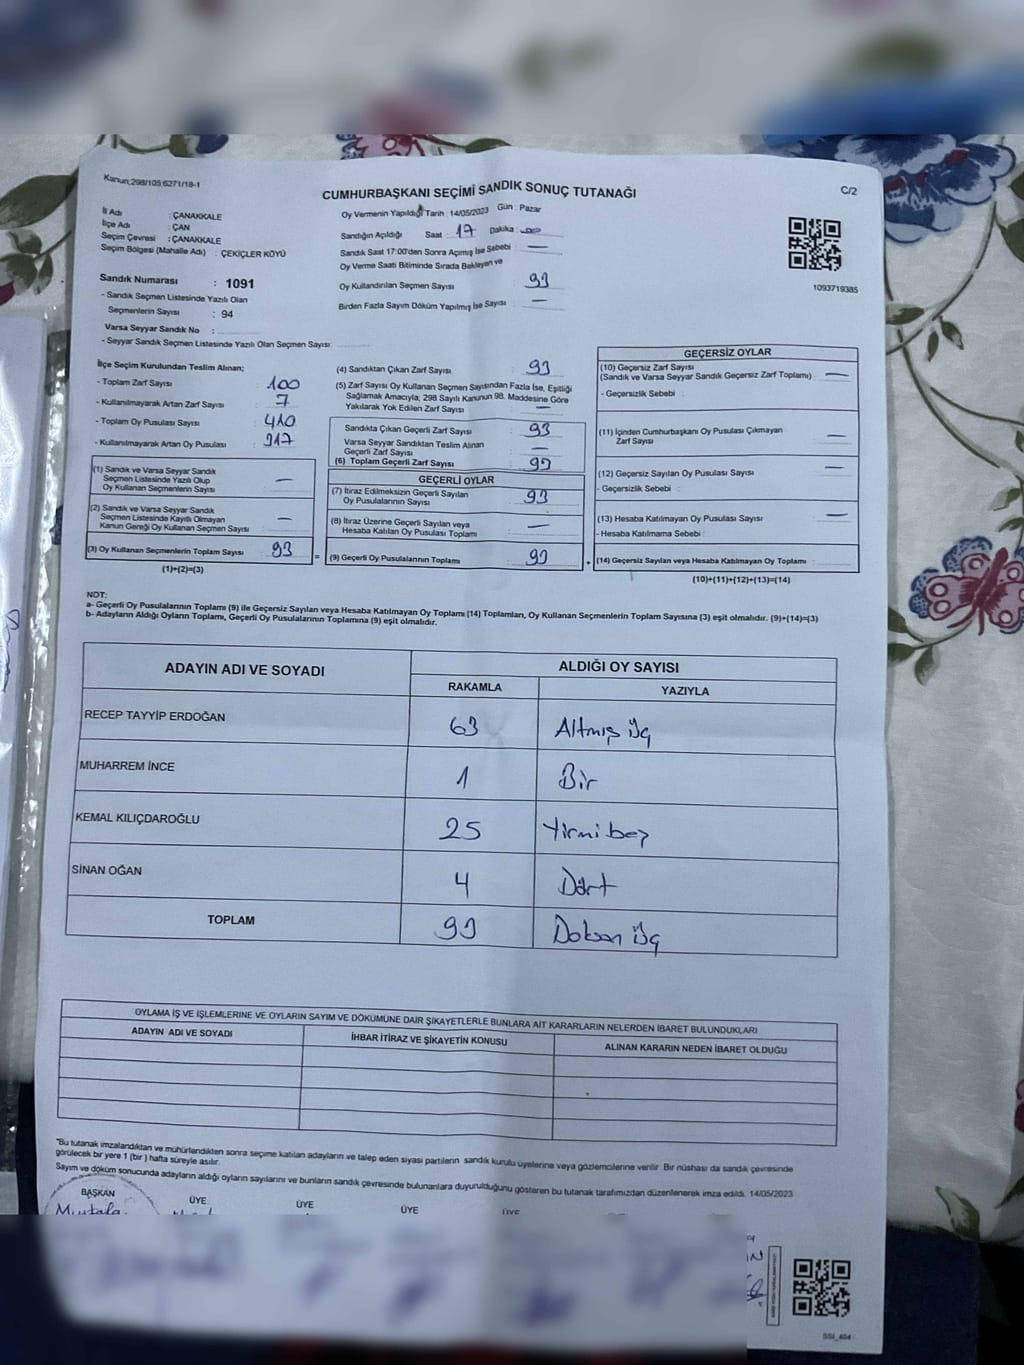 Kanun;298/105;6271/18-1
CUMHURBAŞKANI SEÇİMİ SANDIK SONUÇ TUTANAĞI
C/2
İl Adı : ÇANAKKALE
İlçe Adı : ÇAN
Seçim Çevresi : ÇANAKKALE
Seçim Bölgesi (Mahalle Adı) : ÇEKİÇLER KÖYÜ
Oy Vermenin Yapıldığı Tarih : 14/05/2023 Gün : Pazar
Sandığın Açıldığı Saat 17 Dakika : 00
Sandık Saat 17:00'den Sonra Açımış İse Sebebi : —
Oy Verme Saati Bitiminde Sırada Bekleyen ve
Oy Kullandırılan Seçmen Sayısı : 93
Birden Fazla Sayım Döküm Yapılmış İse Sayısı : —
1093719385
Sandık Numarası : 1091
- Sandık Seçmen Listesinde Yazılı Olan
Seçmenlerin Sayısı : 94
Varsa Seyyar Sandık No :
- Seyyar Sandık Seçmen Listesinde Yazılı Olan Seçmen Sayısı:
İlçe Seçim Kurulundan Teslim Alınan;
- Toplam Zarf Sayısı : 100
- Kullanılmayarak Artan Zarf Sayısı : 7
- Toplam Oy Pusulası Sayısı : 410
- Kullanılmayarak Artan Oy Pusulası : 317
(1) Sandık ve Varsa Seyyar Sandık
Seçmen Listesinde Yazılı Olup
Oy Kullanan Seçmenlerin Sayısı —
(2) Sandık ve Varsa Seyyar Sandık
Seçmen Listesinde Kayıtlı Olmayan
Kanun Gereği Oy Kullanan Seçmen Sayısı —
(3) Oy Kullanan Seçmenlerin Toplam Sayısı 93
(1)+(2)=(3)
=
(4) Sandıktan Çıkan Zarf Sayısı : 93
(5) Zarf Sayısı Oy Kullanan Seçmen Sayısından Fazla İse, Eşitliği
Sağlamak Amacıyla; 298 Sayılı Kanunun 98. Maddesine Göre
Yakılarak Yok Edilen Zarf Sayısı —
Sandıkta Çıkan Geçerli Zarf Sayısı : 93
Varsa Seyyar Sandıktan Teslim Alınan
Geçerli Zarf Sayısı : —
(6) Toplam Geçerli Zarf Sayısı : 93
GEÇERLİ OYLAR
(7) İtiraz Edilmeksizin Geçerli Sayılan
Oy Pusulalarının Sayısı : 93
(8) İtiraz Üzerine Geçerli Sayılan veya
Hesaba Katılan Oy Pusulası Toplamı : —
(9) Geçerli Oy Pusulalarının Toplamı : 93
+
GEÇERSİZ OYLAR
(10) Geçersiz Zarf Sayısı
(Sandık ve Varsa Seyyar Sandık Geçersiz Zarf Toplamı) : —
- Geçersizlik Sebebi :
(11) İçinden Cumhurbaşkanı Oy Pusulası Çıkmayan
Zarf Sayısı : —
(12) Geçersiz Sayılan Oy Pusulası Sayısı : —
- Geçersizlik Sebebi :
(13) Hesaba Katılmayan Oy Pusulası Sayısı : —
- Hesaba Katılmama Sebebi :
(14) Geçersiz Sayılan veya Hesaba Katılmayan Oy Toplamı :
(10)+(11)+(12)+(13)=(14)
NOT:
a- Geçerli Oy Pusulalarının Toplamı (9) ile Geçersiz Sayılan veya Hesaba Katılmayan Oy Toplamı (14) Toplamları, Oy Kullanan Seçmenlerin Toplam Sayısına (3) eşit olmalıdır. (9)+(14)=(3)
b- Adayların Aldığı Oyların Toplamı, Geçerli Oy Pusulalarının Toplamına (9) eşit olmalıdır.
ADAYIN ADI VE SOYADI
ALDIĞI OY SAYISI
RAKAMLA YAZIYLA
RECEP TAYYİP ERDOĞAN 63 Altmış üç
MUHARREM İNCE 1 Bir
KEMAL KILIÇDAROĞLU 25 Yirmi beş
SİNAN OĞAN 4 Dört
TOPLAM 93 Doksan üç
OYLAMA İŞ VE İŞLEMLERİNE VE OYLARIN SAYIM VE DÖKÜMÜNE DAİR ŞİKAYETLERLE BUNLARA AİT KARARLARIN NELERDEN İBARET BULUNDUKLARI
ADAYIN ADI VE SOYADI İHBAR İTİRAZ VE ŞİKAYETİN KONUSU ALINAN KARARIN NEDEN İBARET OLDUĞU
"Bu tutanak imzalandıktan ve mühürlendikten sonra seçime katılan adayların ve talep eden siyasi partilerin sandık kurulu üyelerine veya gözlemcilerine verilir. Bir nüshası da sandık çevresinde
görülecek bir yere 1 (bir) hafta süreyle asılır.
Sayım ve döküm sonucunda adayların aldığı oyların sayılarını ve bunların sandık çevresinde bulunanlara duyurulduğunu gösteren bu tutanak tarafımızdan düzenlenerek imza edildi. 14/05/2023
BAŞKAN ÜYE ÜYE ÜYE ÜYE
Mustafa
SSI_404